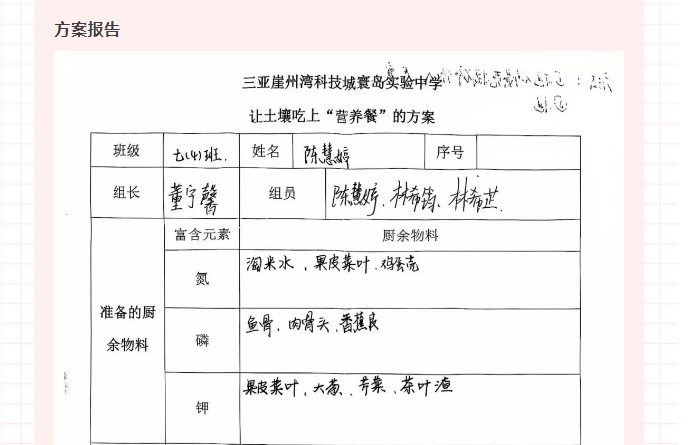 方案报告
三亚崖州湾科技城寰岛实验中学
让土壤吃上“营养餐”的方案
班级 七(4)班. 姓名 陈慧婷 序号
组长 董宁馨 组员 陈慧婷. 林希 林希芷.
富含元素 厨余物料
准备的厨余物料
氮 淘米水，果皮菜叶.鸡蛋壳
磷 鱼骨，肉骨头，香蕉皮
钾 果皮菜叶，大葱、芹菜、茶叶渣